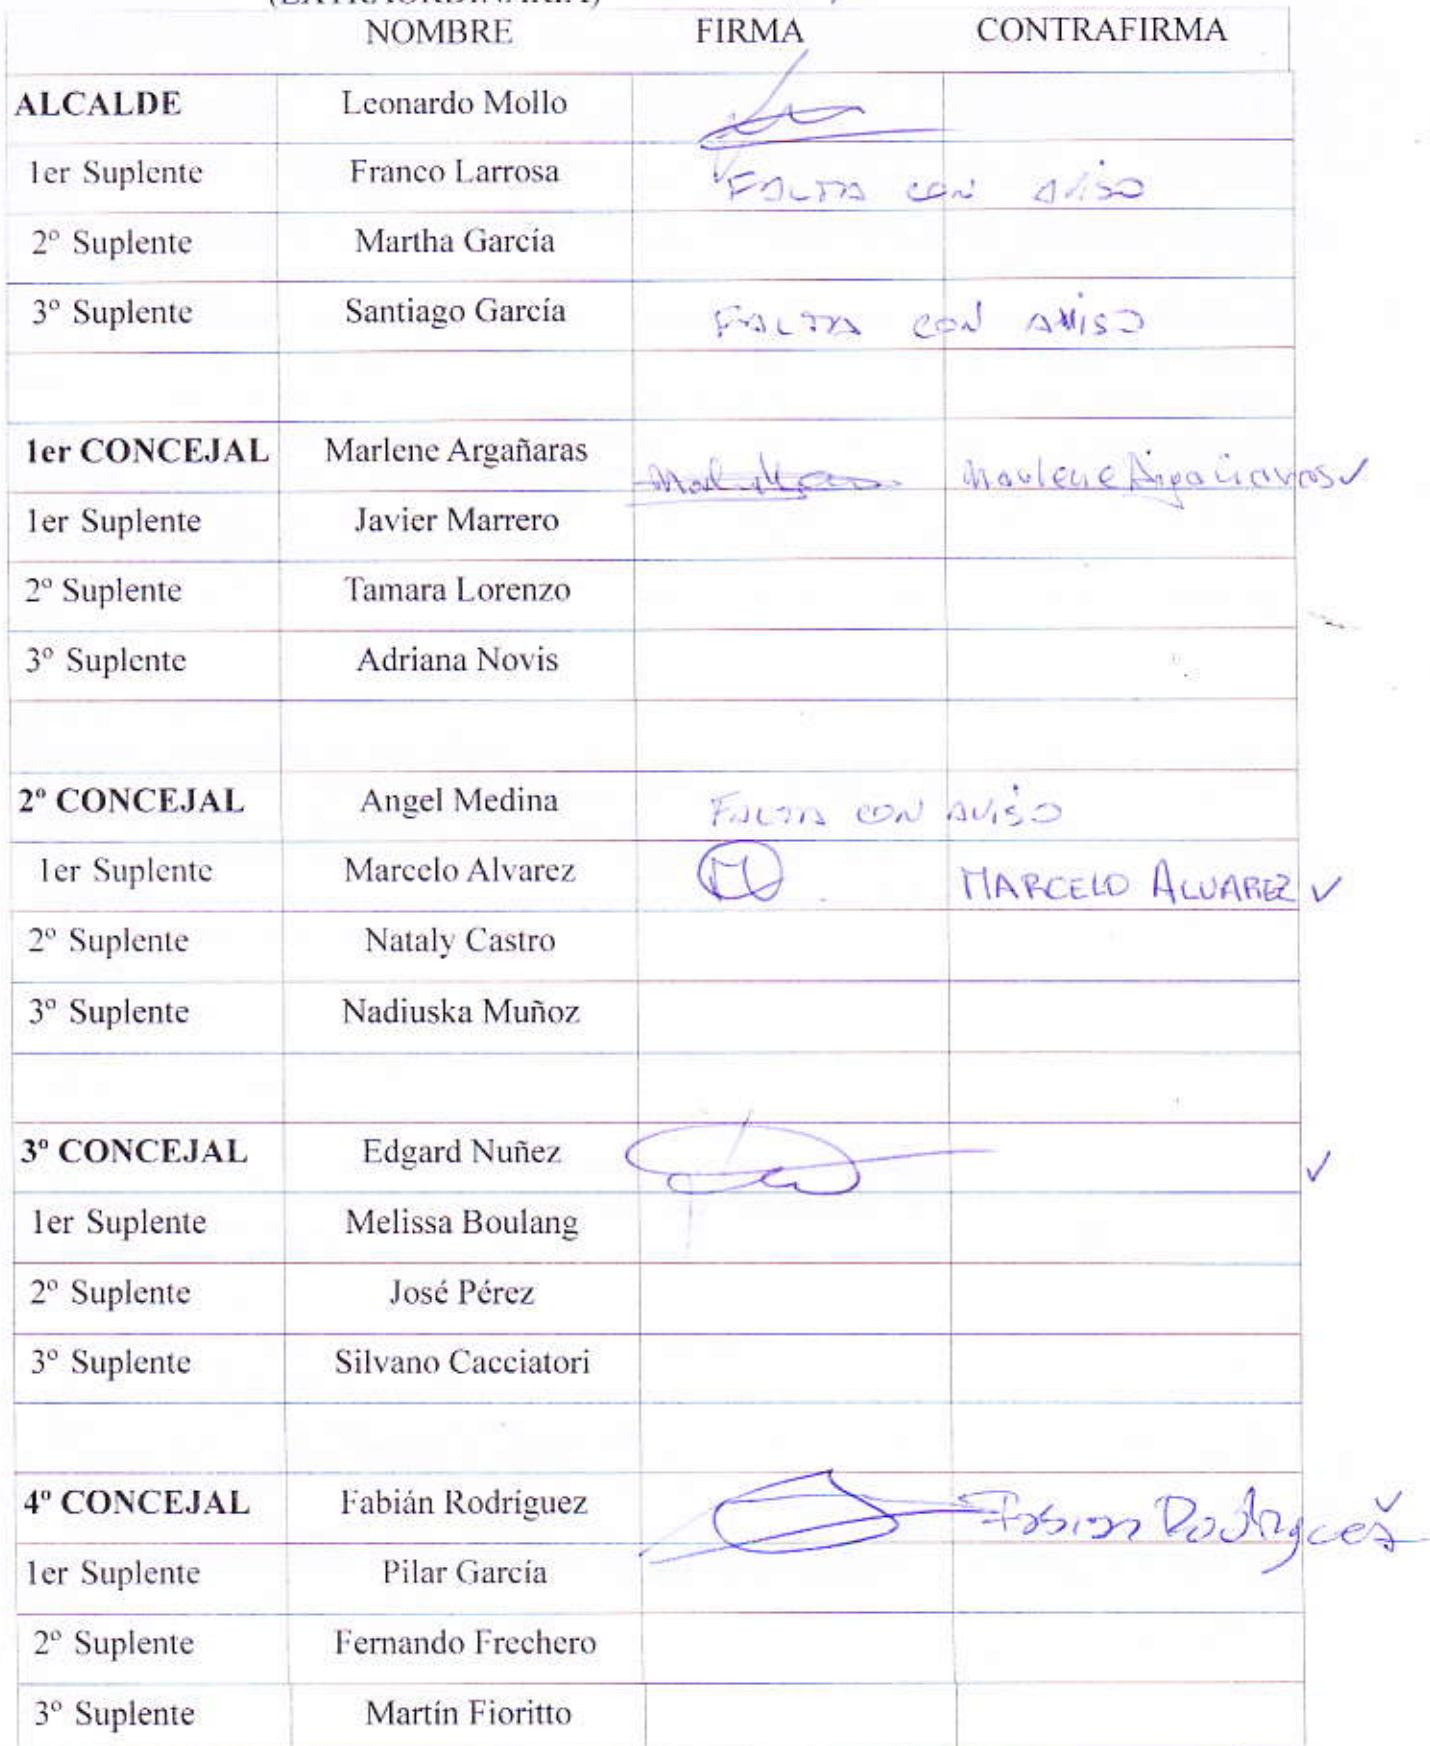 (EXTRAORDINARIA)
NOMBRE FIRMA CONTRAFIRMA
ALCALDE Leonardo Mollo
1er Suplente Franco Larrosa FALTA CON AVISO
2º Suplente Martha García
3º Suplente Santiago García FALTA CON AVISO
1er CONCEJAL Marlene Argañaras Marlene Argañaras ✓
1er Suplente Javier Marrero
2º Suplente Tamara Lorenzo
3º Suplente Adriana Novis
2º CONCEJAL Angel Medina FALTA CON AVISO
1er Suplente Marcelo Alvarez M MARCELO ALVAREZ ✓
2º Suplente Nataly Castro
3º Suplente Nadiuska Muñoz
3º CONCEJAL Edgard Nuñez ✓
1er Suplente Melissa Boulang
2º Suplente José Pérez
3º Suplente Silvano Cacciatori
4º CONCEJAL Fabián Rodríguez Fabian Rodriguez ✓
1er Suplente Pilar García
2º Suplente Fernando Frechero
3º Suplente Martín Fioritto